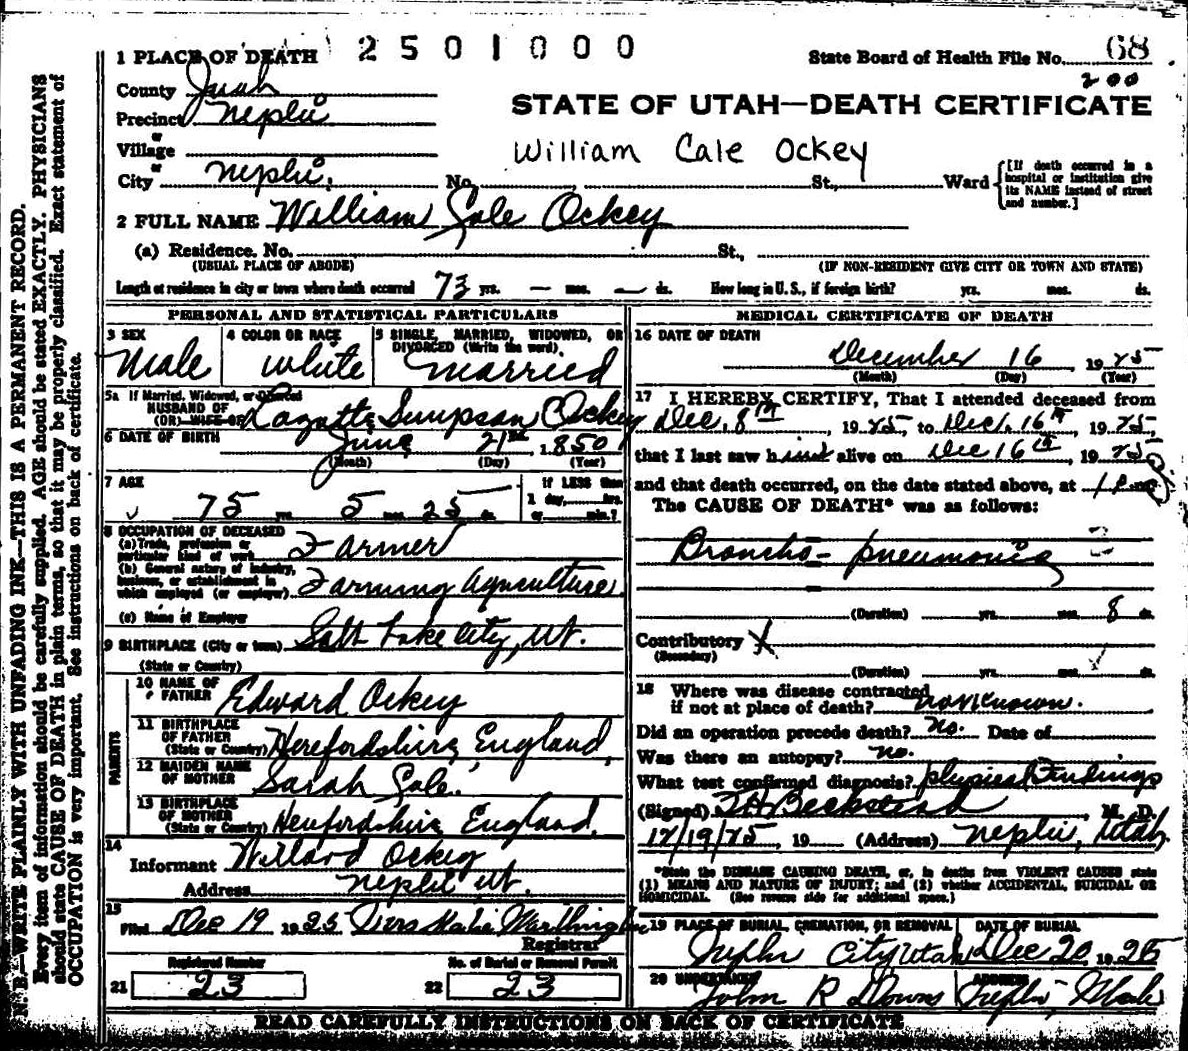 N. B.—WRITE PLAINLY WITH UNFADING INK—THIS IS A PERMANENT RECORD.
Every item of information should be carefully supplied. AGE should be stated EXACTLY. PHYSICIANS
should state CAUSE OF DEATH in plain terms, so that it may be properly classified. Exact statement of
OCCUPATION is very important. See instructions on back of certificate.
1 PLACE OF DEATH 2501000
State Board of Health File No. 68
200
County Juab
STATE OF UTAH—DEATH CERTIFICATE
Precinct Nephi
or
Village
William Cale Ockey
or
City Nephi. No. St., Ward
[If death occurred in a hospital or institution give its NAME instead of street and number.]
2 FULL NAME William Cale Ockey
(a) Residence. No. St.,
(USUAL PLACE OF ABODE) (IF NON-RESIDENT GIVE CITY OR TOWN AND STATE)
Length of residence in city or town where death occurred 73 yrs. — mos. — ds. How long in U. S., if foreign birth? yrs. mos. ds.
PERSONAL AND STATISTICAL PARTICULARS
3 SEX Male
4 COLOR OR RACE white
5 SINGLE, MARRIED, WIDOWED, OR DIVORCED (Write the word). married
5a If Married, Widowed, or Divorced
HUSBAND OF
(OR) WIFE OF Simpson Ockey
6 DATE OF BIRTH June 21 1850
(Month) (Day) (Year)
7 AGE 75 yrs. 5 mos. 25 ds.
If LESS than 1 day, hrs. or min.?
8 OCCUPATION OF DECEASED
(a) Trade, profession or particular kind of work Farmer
(b) General nature of industry, business, or establishment in which employed (or employer) Farming Agriculture
(c) Name of Employer
9 BIRTHPLACE (City or town) Salt Lake City, Ut.
(State or Country)
PARENTS
10 NAME OF FATHER Edward Ockey
11 BIRTHPLACE OF FATHER (State or Country) Herefordshire, England
12 MAIDEN NAME OF MOTHER Sarah Cale.
13 BIRTHPLACE OF MOTHER (State or Country) Herefordshire England
14
Informant Willard Ockey
Address Nephi Ut.
15
Filed Dec 19 1925
Registrar
Registered Number
21 23
No. of Burial or Removal Permit
22 23
MEDICAL CERTIFICATE OF DEATH
16 DATE OF DEATH
December 16 1925
(Month) (Day) (Year)
17 I HEREBY CERTIFY, That I attended deceased from
Dec. 8th, 1925, to Dec. 16th, 1925,
that I last saw him alive on Dec 16th, 1925
and that death occurred, on the date stated above, at 1 P.m.
The CAUSE OF DEATH* was as follows:
Broncho-pneumonia
(Duration) yrs. mos. 8 ds.
Contributory
(Secondary)
(Duration) yrs. mos. ds.
18 Where was disease contracted
if not at place of death? not known.
Did an operation precede death? no. Date of
Was there an autopsy? no.
What test confirmed diagnosis? physical findings
(Signed) Beckstead M. D.
12/19/25, 19 (Address) Nephi, Utah
*State the DISEASE CAUSING DEATH, or, in deaths from VIOLENT CAUSES state
(1) MEANS AND NATURE OF INJURY; and (2) whether ACCIDENTAL, SUICIDAL OR
HOMICIDAL. (See reverse side for additional space.)
19 PLACE OF BURIAL, CREMATION, OR REMOVAL
Nephi City Utah
DATE OF BURIAL
Dec 20 1925
20 UNDERTAKER
John R Downs
ADDRESS
Nephi, Utah
READ CAREFULLY INSTRUCTIONS ON BACK OF CERTIFICATE